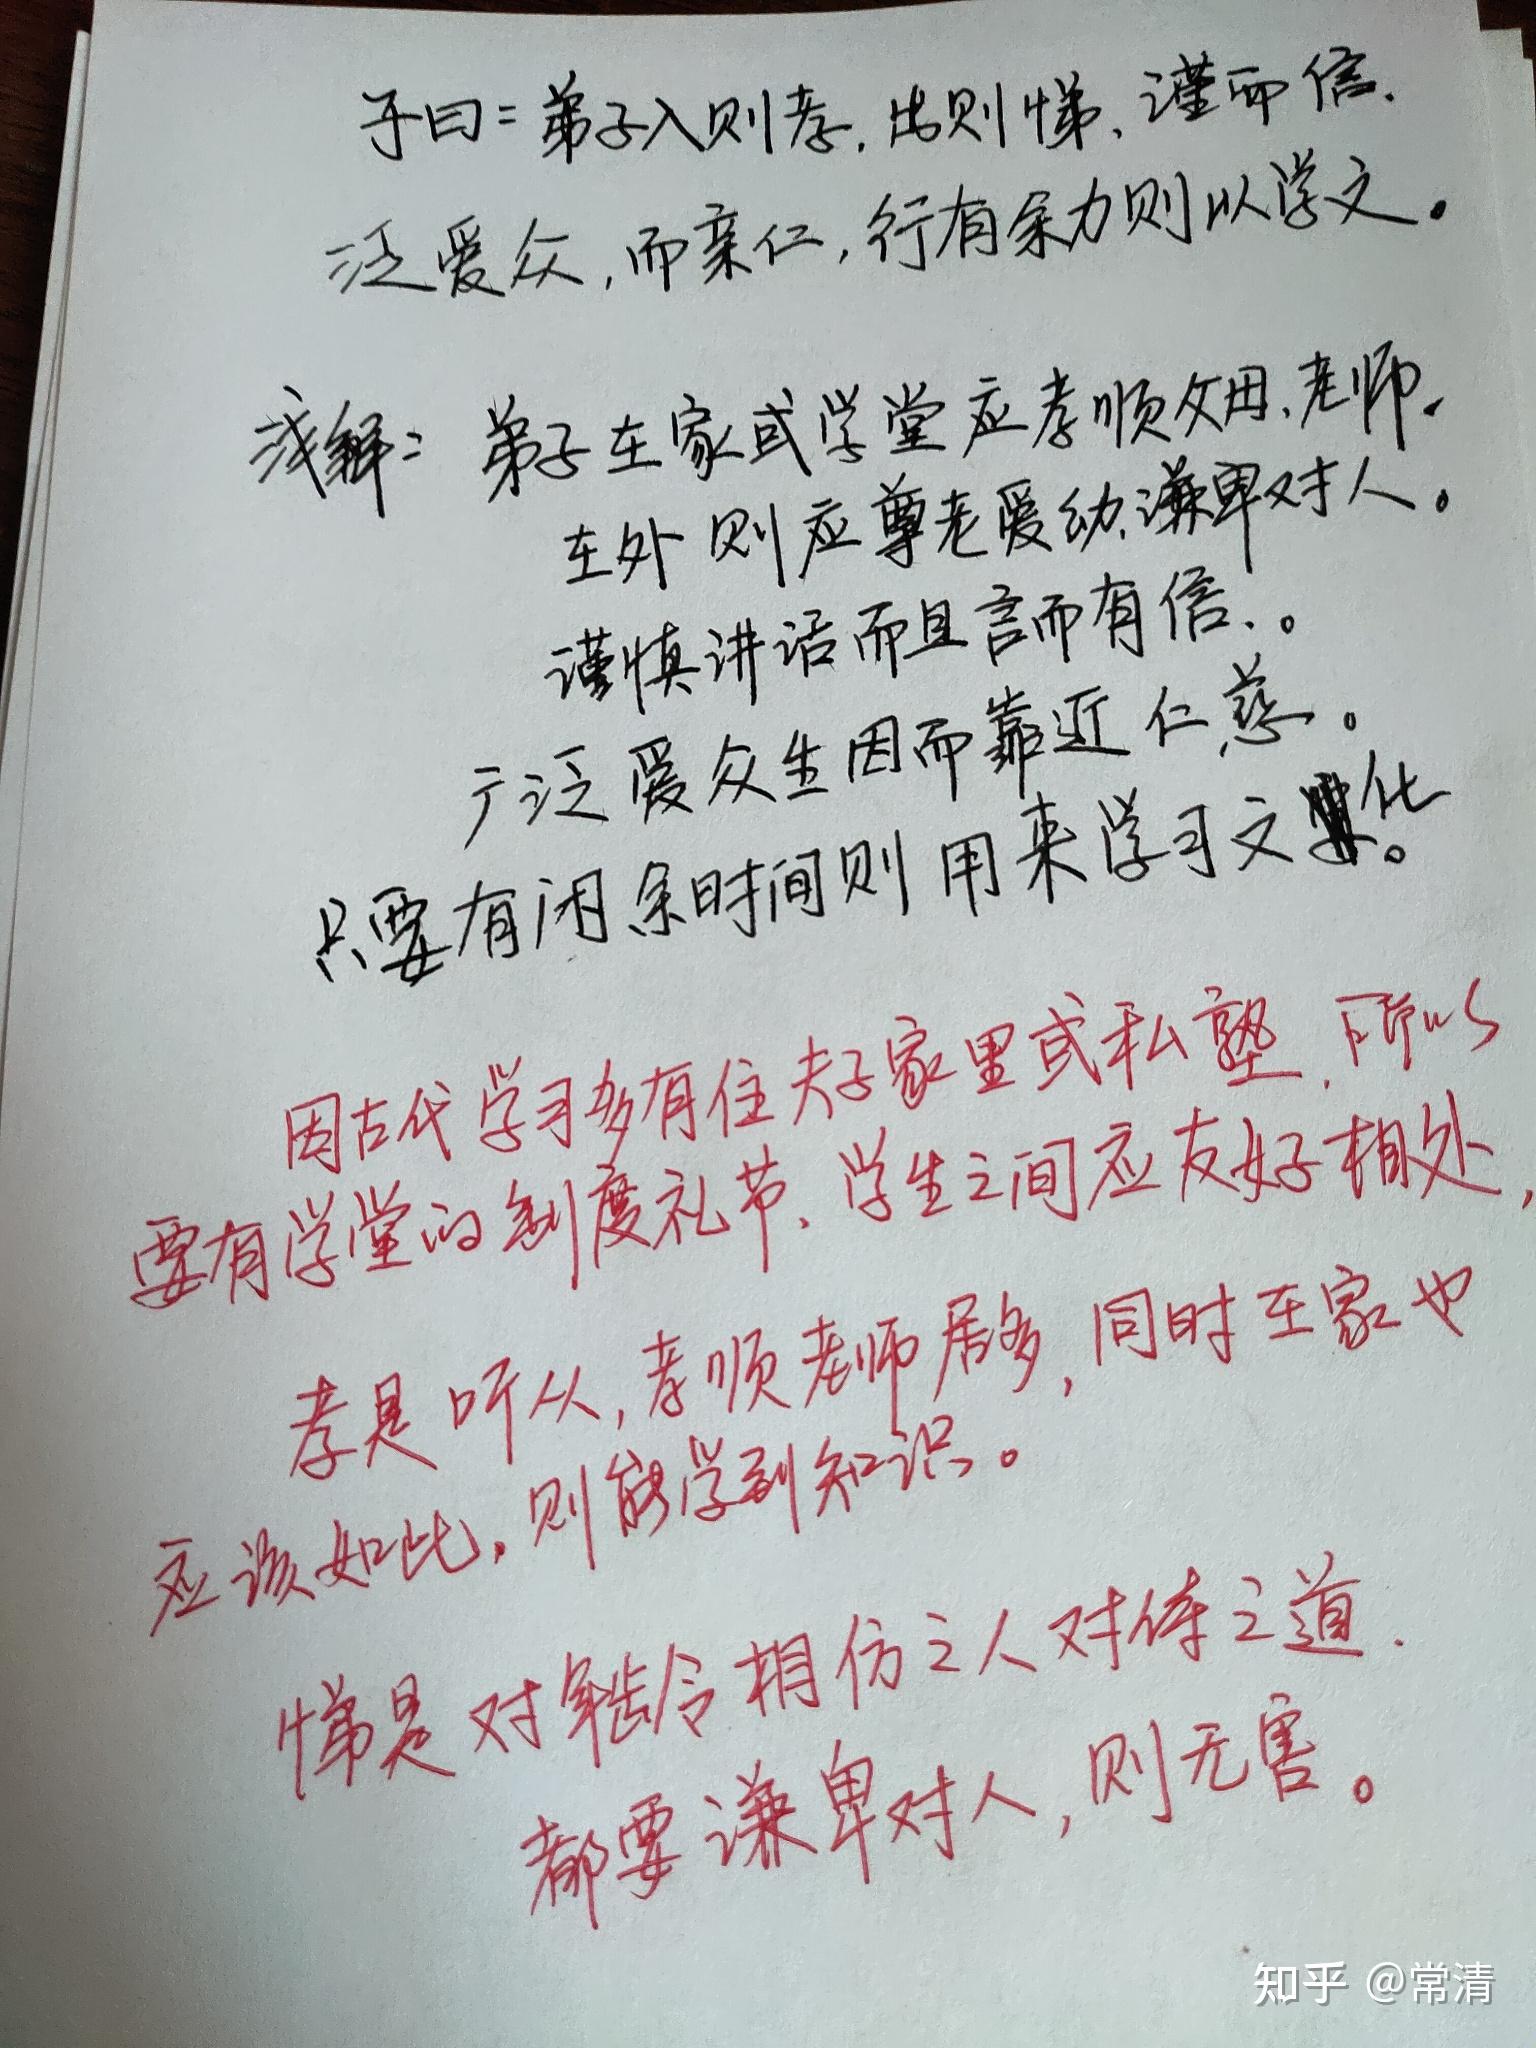 子曰：弟子入则孝，出则悌、谨而信.
泛爱众，而亲仁，行有余力则以学文。
浅解：弟子在家或学堂应孝顺父母、老师.
在外则应尊老爱幼、谦卑对人。
谨慎讲话而且言而有信.。
广泛爱众生因而靠近仁慈。
只要有闲余时间则用来学习文化。
因古代学习多有住夫子家里或私塾，所以
要有学堂的制度礼节、学生之间应友好相处，
孝是听从，孝顺老师居多，同时在家也
应该如此，则能学到知识。
悌是对年龄相仿之人对待之道.
都要谦卑对人，则无害。
知乎 @常清